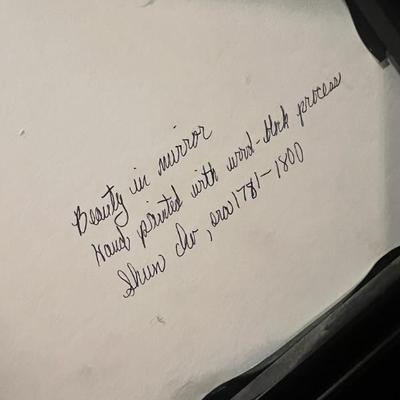 Beauty in mirror
Hand painted with wood-block process
Shun cho, era 1781-1800